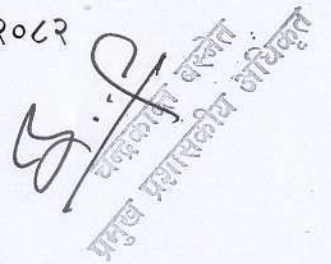 २०८२
चन्द्रकान्त बस्नेत
प्रमुख प्रशासकीय अधिकृत